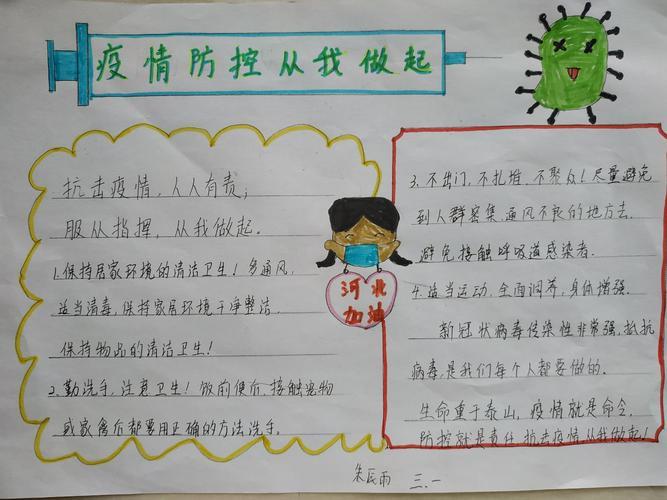 疫情防控从我做起
抗击疫情，人人有责；
服从指挥，从我做起.
1.保持居家环境的清洁卫生！多通风，
适当消毒，保持家居环境干净整洁.
保持物品的清洁卫生！
2.勤洗手，注意卫生！饭前便后，接触宠物
或家禽后都要用正确的方法洗手.
河北
加油
3.不出门，不扎堆，不聚众！尽量避免
到人群密集通风不良的地方去.
避免接触呼吸道感染者.
4.适当运动，全面调养，身体增强.
新冠状病毒传染性非常强，抵抗
病毒，是我们每个人都要做的.
生命重于泰山，疫情就是命令，
防控就是责任，抗击疫情从我做起！
朱辰雨 三.一